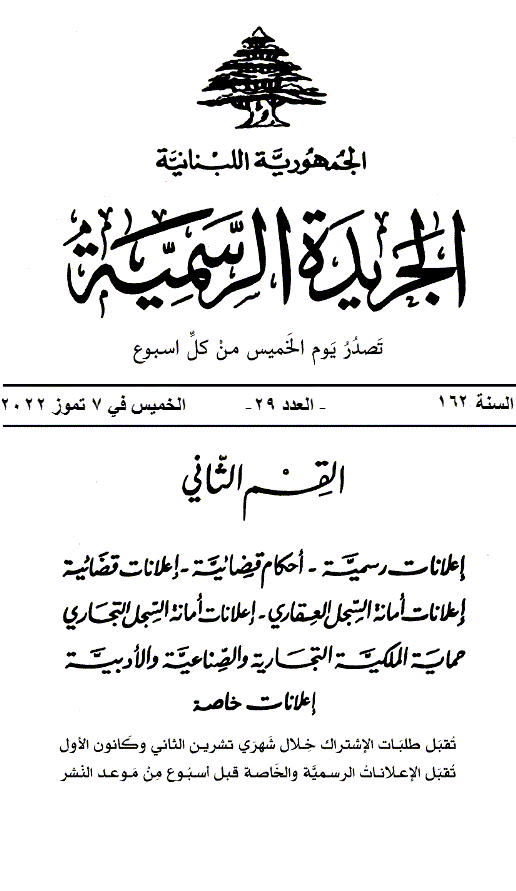 الجمهورية اللبنانية
الجريدة الرسمية
تَصدُرُ يَوم الخَميس منْ كلِّ اسبوع
السنة ١٦٢ - العدد ٢٩ - الخميس في ٧ تموز ٢٠٢٢
القِسْم الثّاني
إعلانات رسميَّة - أحكام قضائيَّة - إعلانات قضائية
إعلانات أمانة السّجل العقاري - إعلانات أمانة السّجل التجاري
حماية الملكيَّة التجارية والصِّناعيَّة والأدبيَّة
إعلانات خاصة
تُقبَل طلبَات الإشتراك خِلال شَهرَي تشرين الثاني وكَانون الأول
تُقبَل الإعلاناتُ الرسميَّة والخَاصة قبل أسبُوع مِنْ مَوعد النَشر